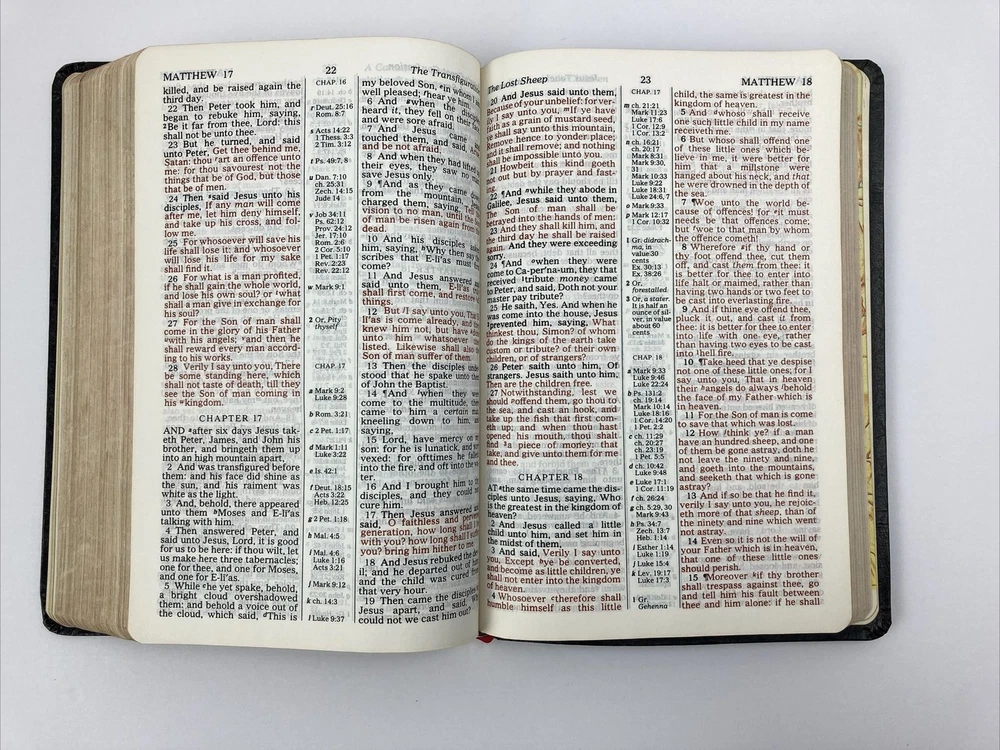 MATTHEW 17
22
The Transfigurati
killed, and be raised again the
third day.
22 Then Peter took him, and
began to rebuke him, saying,
²Be it far from thee, Lord: this
shall not be unto thee.
23 But he turned, and said
unto Peter, Get thee behind me,
Satan: thou ʳart an offence unto
me: for thou savourest not the
things that be of God, but those
that be of men.
24 Then ˢsaid Jesus unto his
disciples, If any man will come
after me, let him deny himself,
and take up his cross, and fol-
low me.
25 For whosoever will save his
life shall lose it: and whosoever
will lose his life for my sake
shall find it.
26 For what is a man profited,
if he shall gain the whole world,
and lose his own soul? or ᵗwhat
shall a man give in exchange for
his soul?
27 For the Son of man shall
come in the glory of his Father
ᵘwith his angels; ᵛand then he
shall reward every man accord-
ing to his works.
28 Verily I say unto you, There
be some standing here, which
shall not taste of death, till they
see the Son of man coming in
his ʷkingdom.
CHAPTER 17
AND ᵃafter six days Jesus tak-
eth Peter, James, and John his
brother, and bringeth them up
into an high mountain apart.
2 And was transfigured before
them: and his face did shine as
the sun, and his raiment was
white as the light.
3 And, behold, there appeared
unto them ᵇMoses and E-lī'as
talking with him.
4 Then answered Peter, and
said unto Jesus, Lord, it is good
for us to be here: if thou wilt, let
us make here three tabernacles;
one for thee, and one for Moses,
and one for E-lī'as.
5 While ᶜhe yet spake, behold,
a bright cloud overshadowed
them: and behold a voice out of
the cloud, which said, ᵈThis is
CHAP. 16
r Deut. 25:16
Rom. 8:7
s Acts 14:22
1 Thess. 3:3
2 Tim. 3:12
t Ps. 49:7, 8
u Dan. 7:10
ch. 25:31
Zech. 14:15
Jude 14
v Job 34:11
Ps. 62:12
Prov. 24:12
Jer. 17:10
Rom. 2:6
2 Cor. 5:10
1 Pet. 1:17
Rev. 2:23
Rev. 22:12
w Mark 9:1
2 Or, Pity
thyself
CHAP. 17
a Mark 9:2
Luke 9:28
b Rom. 3:21
c 2 Pet. 1:17
d Mark 1:11
Luke 3:22
e Is. 42:1
f Deut. 18:15
Acts 3:22
Heb. 12:25
g 2 Pet. 1:18
h Mal. 4:5
i Mal. 4:6
Luke 1:16
Acts 3:21
j Mark 9:12
k ch. 14:3
l Luke 9:37
my beloved Son, ᵉin whom I
well pleased; ᶠhear ye him.
6 And ᵍwhen the disci
heard it, they fell on their
and were sore afraid.
7 And Jesus came
touched them, and said,
and be not afraid.
8 And when they had lifted
their eyes, they saw no
save Jesus only.
9 ¶And as they came
from the mountain,
charged them, saying, Tell
vision to no man, until the
of man be risen again from
dead.
10 And his disciples asked
him, saying, ʰWhy then say
scribes that E-lī'as must
come?
11 And Jesus answered
said unto them, E-lī'as
shall first come, and restore
things.
12 But ⁱI say unto you, Tha
lī'as is come already, and
knew him not, but have
unto him whatsoever
listed. Likewise shall also
Son of man suffer of them.
13 Then the disciples under
stood that he spake unto them
of John the Baptist.
14 ¶And ˡwhen they we
come to the multitude, the
came to him a certain ma
kneeling down to him, an
saying,
15 Lord, have mercy on m
son: for he is lunatick, and so
vexed: for ofttimes he falle
into the fire, and oft into the w
ter.
16 And I brought him to
disciples, and they could
cure him.
17 Then Jesus answered an
said, O faithless and perve
generation, how long shall
with you? how long shall I suff
you? bring him hither to me.
18 And Jesus rebuked the de
il; and he departed out of h
and the child was cured fro
that very hour.
19 Then came the disciples
Jesus apart, and said, Wh
could not we cast him out?
The Lost Sheep
23
MATTHEW 18
20 And Jesus said unto them,
Because of your unbelief: for ver-
ily I say unto you, ᵐIf ye have
faith as a grain of mustard seed,
ye shall say unto this mountain,
Remove hence to yonder place;
and it shall remove; and nothing
shall be impossible unto you.
21 Howbeit this kind goeth
not out but by prayer and fast-
ing.
22 ¶And ⁿwhile they abode in
Galilee, Jesus said unto them,
The Son of man shall be
betrayed into the hands of men:
23 And they shall kill him, and
the third day he shall be raised
again. And they were exceeding
sorry.
24 ¶And ᵒwhen they were
come to Ca-per'na-um, they that
received ¹tribute money came
to Peter, and said, Doth not your
master pay tribute?
25 He saith, Yes. And when he
was come into the house, Jesus
²prevented him, saying, What
thinkest thou, Simon? of whom
do the kings of the earth take
custom or tribute? of their own
children, or of strangers?
26 Peter saith unto him, Of
strangers. Jesus saith unto him,
Then are the children free.
27 Notwithstanding, lest we
should ᵖoffend them, go thou to
the sea, and cast an hook, and
take up the fish that first com-
eth up; and when thou hast
opened his mouth, thou shalt
find ³a piece of money: that
take, and give unto them for me
and thee.
CHAPTER 18
AT ᵃthe same time came the dis-
ciples unto Jesus, saying, Who
is the greatest in the kingdom of
heaven?
2 And Jesus called a little
child unto him, and set him in
the midst of them,
3 And said, Verily I say unto
you, Except ᵇye be converted,
and become as little children, ye
shall not enter into the kingdom
of heaven.
4 Whosoever ᶜtherefore shall
humble himself as this little
CHAP. 17
m ch. 21:21
Mark 11:23
Luke 17:6
1 Cor. 12:9
1 Cor. 13:2
n ch. 16:21
ch. 20:17
Mark 8:31
Mark 9:30,
31
Mark 10:33
Luke 9:22
Luke 18:31
Luke 24:6, 7
o Mark 9:33
p Mark 12:17
1 Cor. 10:32
1 Gr. didrach-
ma, in
value 30
cents
Ex. 30:13
Ex. 38:26
2 Or,
forestalled
3 Or, a stater.
It is half an
ounce of sil-
ver, in value
about 60
cents
CHAP. 18
a Mark 9:33
Luke 9:46
Luke 22:24
b Ps. 131:2
ch. 19:14
Mark 10:14
Luke 18:16
1 Cor. 14:20
1 Pet. 2:2
c ch. 11:29
ch. 20:27
ch. 23:19
1 Pet. 5:5
d ch. 10:42
Luke 9:48
e Luke 17:1
1 Cor. 11:19
f ch. 26:24
g ch. 5:29, 30
Mark 9:43
h Ps. 34:7
Zech. 13:7
Heb. 1:14
i Esther 1:14
Luke 1:19
j Luke 15:4
k Lev. 19:17
Luke 17:3
1 Gr.
Gehenna
child, the same is greatest in the
kingdom of heaven.
5 And ᵈwhoso shall receive
one such little child in my name
receiveth me.
6 But whoso shall offend one
of these little ones which be-
lieve in me, it were better for
him that a millstone were
hanged about his neck, and that
he were drowned in the depth of
the sea.
7 ¶Woe unto the world be-
cause of offences! for ᵉit must
needs be that offences come;
but ᶠwoe to that man by whom
the offence cometh!
8 Wherefore ᵍif thy hand or
thy foot offend thee, cut them
off, and cast them from thee: it
is better for thee to enter into
life halt or maimed, rather than
having two hands or two feet to
be cast into everlasting fire.
9 And if thine eye offend thee,
pluck it out, and cast it from
thee: it is better for thee to enter
into life with one eye, rather
than having two eyes to be cast
into ¹hell fire.
10 ¶Take heed that ye despise
not one of these little ones; for I
say unto you, That in heaven
their ʰangels do always ⁱbehold
the face of my Father which is
in heaven.
11 For the Son of man is come
to save that which was lost.
12 How ʲthink ye? if a man
have an hundred sheep, and one
of them be gone astray, doth he
not leave the ninety and nine,
and goeth into the mountains,
and seeketh that which is gone
astray?
13 And if so be that he find it,
verily I say unto you, he rejoic-
eth more of that sheep, than of
the ninety and nine which went
not astray.
14 Even so it is not the will of
your Father which is in heaven,
that one of these little ones
should perish.
15 ¶Moreover ᵏif thy brother
shall trespass against thee, go
and tell him his fault between
thee and him alone: if he shall